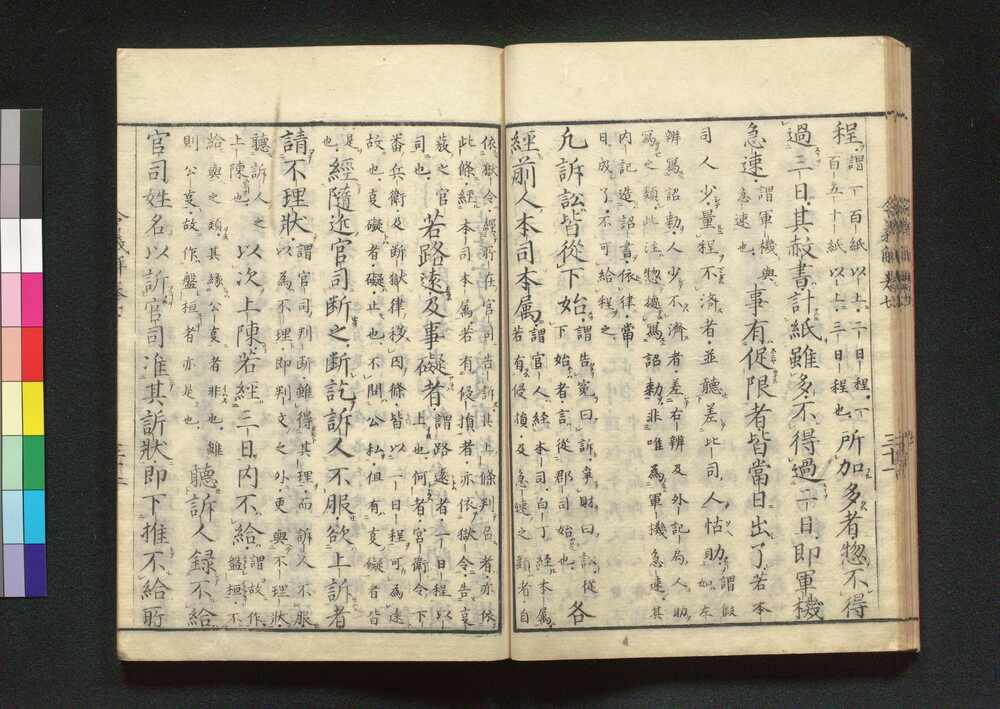 程謂一百紙以上二日程
百五十紙以上三日程也所加多者惣不得
過三日其赦書計紙雖多不得過一日即軍機
急速謂軍機與
急速也事有促限者皆當日出了若本
司人少量程不済者並聽差比司人怙助謂假如左
辨寫詔勅人少不濟者差右辨及外記局人助
寫之類此注惣攝寫詔勅非唯為軍機急速其
内記造詔書依律當
日成了不可給程之
凡訴訟皆從下始謂告寃曰訴爭財曰訟從
下始者言從郡司始也各
經前人本司本属謂官人經本司白丁經本属
若有侵損及急速之類者自
依獄令經所在官司告訴其上條判召者亦依
此條經本司本属若有侵損者亦依獄令告裒
發之官
司也若路遠及事礙者謂路遠者一日程以
上也何者宮衛令下
番兵衛及断獄律移囚條皆以一日程可為遠
故也裒礙者礙止也不問公私但有裒礙者皆
是
也經隨近官司断之断訖訴人不服欲上訴者
請不理状謂官司判断雖得其理而訴人不服
以為不理即判文之外更與不理状
聽訴人之
上陳也以次上陳若經三日内不給謂故作
盤桓不
給與之類其縁公裒者非也雖
則公裒故作盤桓者亦是也聽訴人録不給
官司姓名以訴官司准其訴状即下推不給所